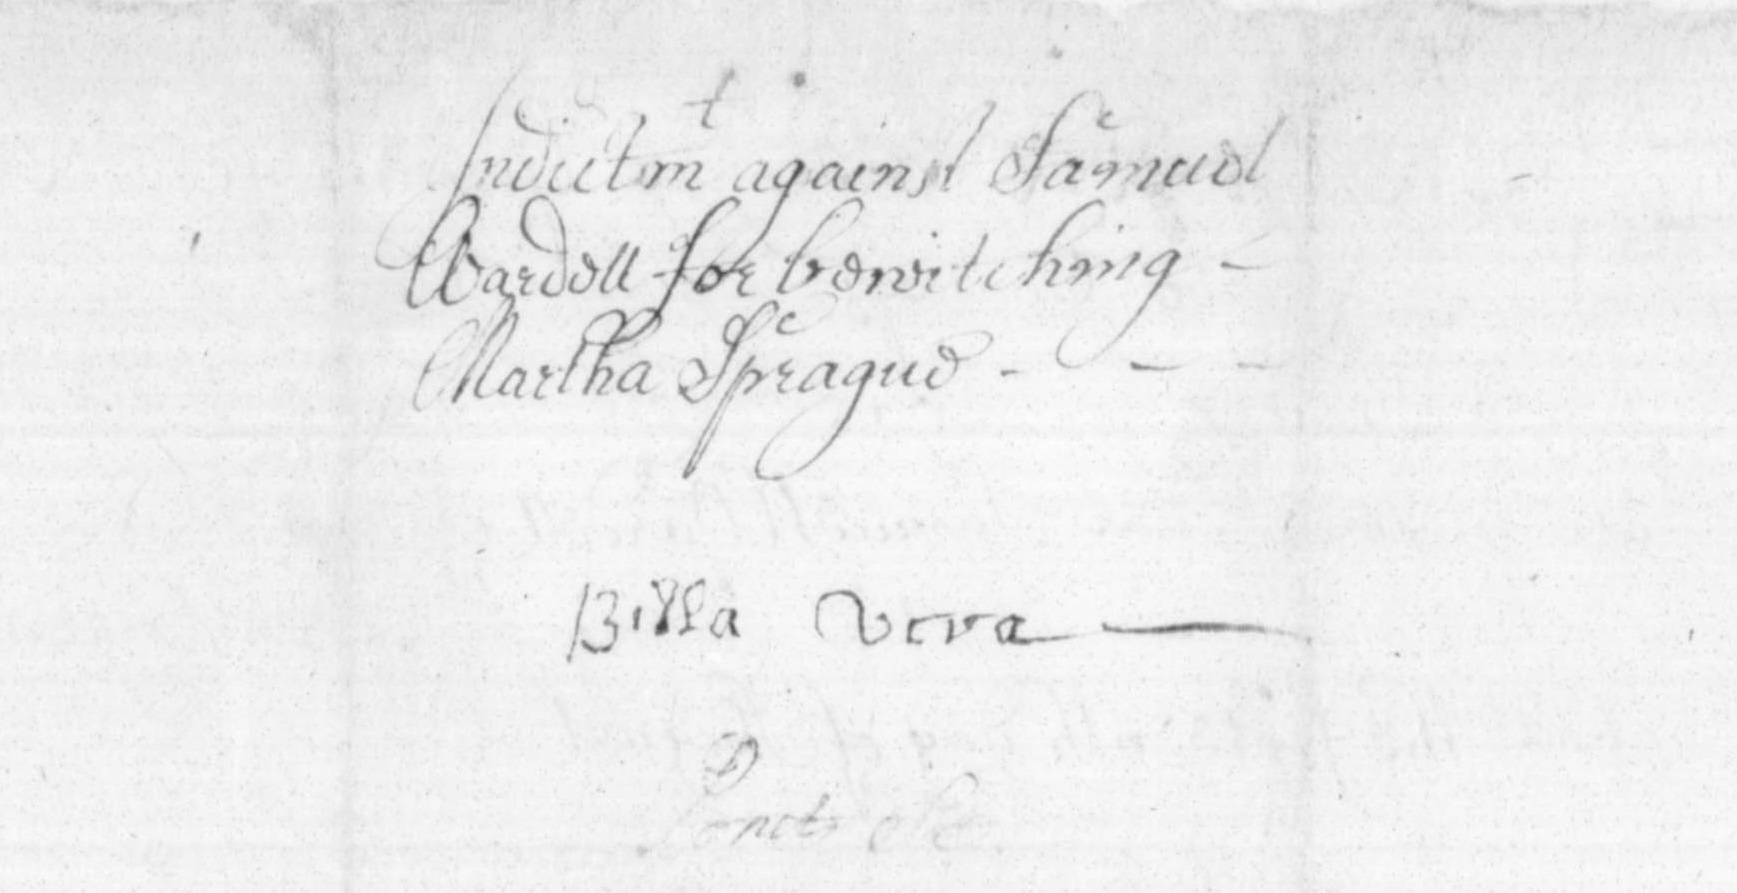 Indictmt against Samuel
Wardell for bewitching -
Martha Sprague - - -
Billa Vera